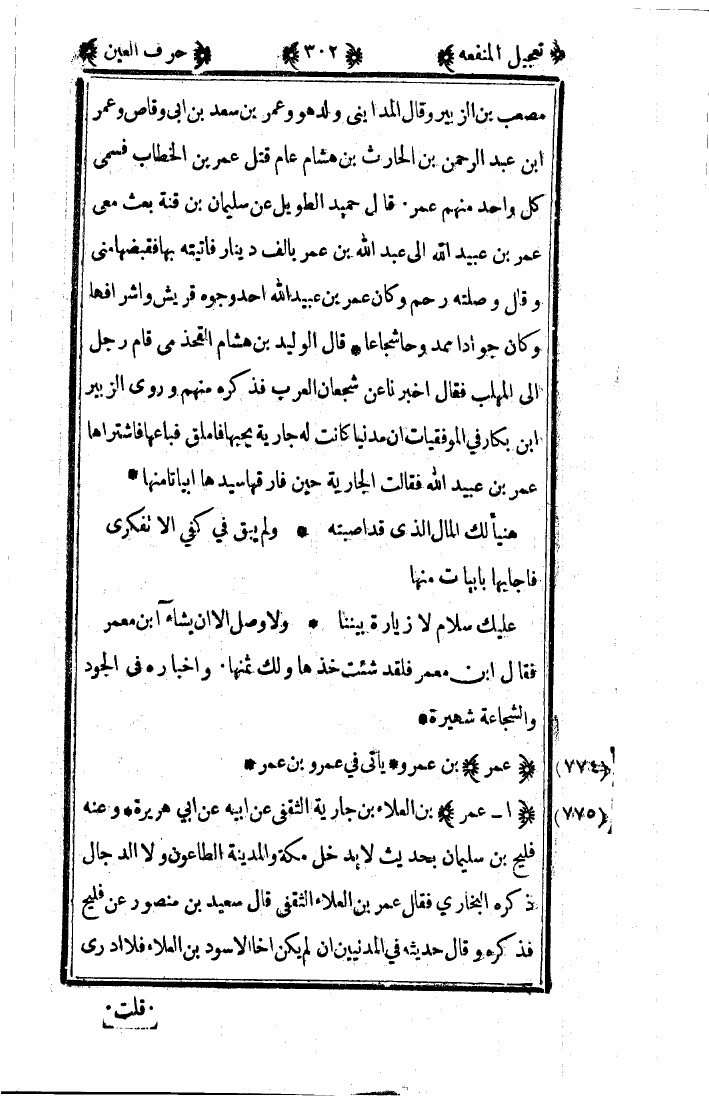 ﴿ تعجيل المنفعه ﴾ ﴿ ٣٠٢ ﴾ ﴿ حرف العين ﴾
مصعب بن الزبير وقال المدايني ولد هو وعمر بن سعد بن ابي وقاص وعمر
ابن عبد الرحمن بن الحارث بن هشام عام قتل عمر بن الخطاب فسمى
كل واحد منهم عمر · قال حميد الطويل عن سليمان بن قنة بعث معى
عمر بن عبيد الله الى عبد الله بن عمر بالف دينار فاتيته بها فقبضها منى
وقال وصلته رحم وكان عمر بن عبيدالله احد وجوه قريش واشرافها
وكان جوادا ممدوحا شجاعا * قال الوليد بن هشام القحذمى قام رجل
الى المهلب فقال اخبرنا عن شجعان العرب فذكره منهم وروى الزبير
ابن بكار في الموفقيات ان مدنيا كانت له جارية يحبها فاملق فباعها فاشتراها
عمر بن عبيد الله فقالت الجارية حين فارقها سيدها ابياتا منها *
هنيأ لك المال الذى قد اصبته * ولم يبق في كفي الا تفكرى
فاجابها بابيات منها
عليك سلام لا زيارة بيننا * ولا وصل الا ان يشاء آ بن معمر
فقال ابن معمر فلقد شئت خذها ولك ثمنها · واخباره فى الجود
والشجاعة شهيرة *
(٧٧٤) ﴿ عمر ﴾ بن عمرو * يأتى في عمرو بن عمر *
(٧٧٥) ﴿ ا - عمر ﴾ بن العلاء بن جارية الثقفى عن ابيه عن ابي هريرة * وعنه
فليح بن سليمان بحديث لا يدخل مكة والمدينة الطاعون ولا الدجال
ذكره البخاري فقال عمر بن العلاء الثقفى قال سعيد بن منصور عن فليح
فذكره وقال حديثه في المدنيين ان لم يكن اخا الاسود بن العلاء فلا ادرى
· قلت ·